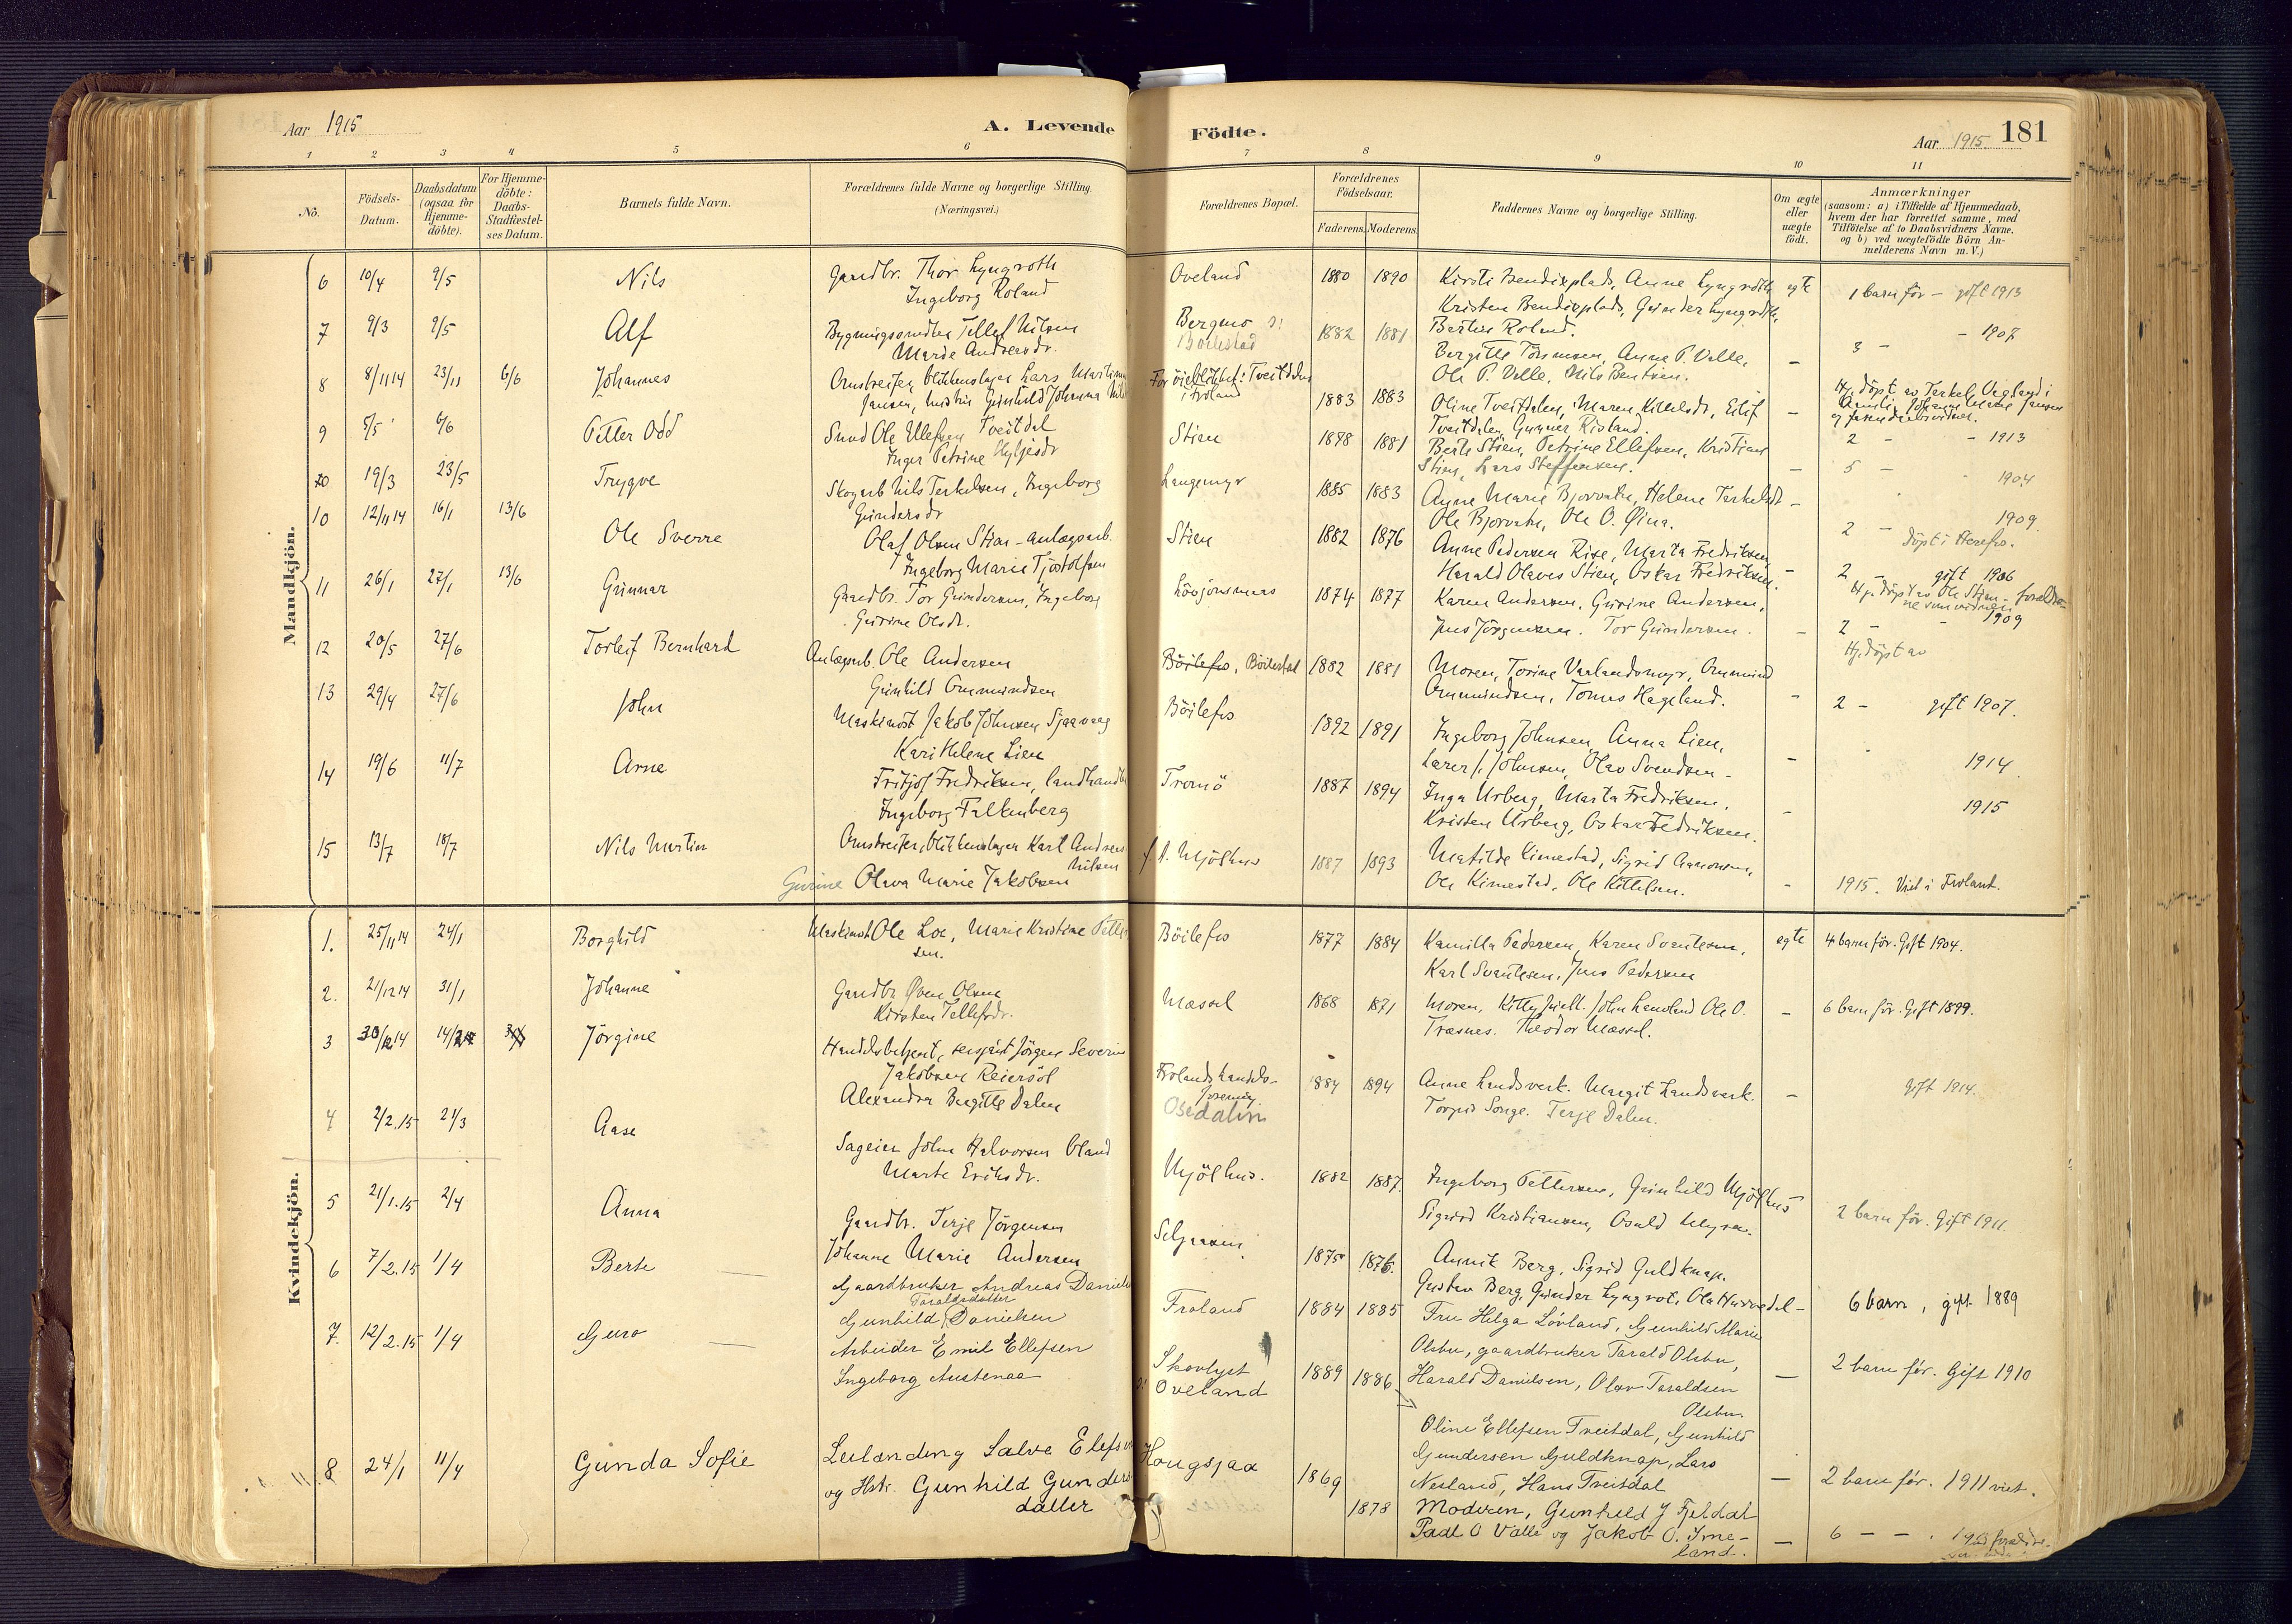 Aar 1915
A. Levende
Födte.
Aar 1915. 181
1 2 3 4 5 6 7 8 9 10 11
No.
Födsels-
Datum.
Daabsdatum
(ogsaa for
Hjemme-
döbte).
For Hjemme-
döbte:
Daabs-
Stadfæstel-
ses Datum.
Barnets fulde Navn.
Forældrenes fulde Navne og borgerlige Stilling.
(Næringsvei.)
Forældrenes Bopæl.
Forældrenes
Födselsaar.
Faderens. Moderens.
Faddernes Navne og borgerlige Stilling.
Om ægte
eller
uægte
födt.
Anmærkninger
(saasom: a) i Tilfælde af Hjemmedaab,
hvem der har forrettet samme, med
Tilföielse af to Daabsvidners Navne,
og b) ved uægtefödte Börn An-
melderens Navn m. V.)
Mandkjön.
6 10/4 9/5 Nils Gaardbr. Thor Lyngroth Oveland 1880 1890 Kirsti Bendixplads, Anne Lyngroth egte 1 barn för - gift 1913
Ingeborg Roland Kristen Bendixplads, Gunder Lyngroth,
7 9/3 9/5 Alf Tellef Nilsen Bergmo 1882 1881 Bertin Roland. 3 - - 1907
Marie Andreasdr. Böilestad Bergitte Törresen, Anne P. Valle, -
Ole P. Valle, Nils Bentsen.
8 8/11 14 23/11 6/6 Johannes Omstreifer, blikkenslager Lars Martinius For öieblikket: Tveitdalen 1883 1883 Oline Tveitdalen, Maren Kittelsdr, Eilif - Hj. döpt av Terkel
Jansen, hustru Gunhild Johanna i Froland Tveitdalen, Gunner Risland.
9 5/5 6/6 Petter Odd Smed Ole Ellefsen Tveitdal Stien 1898 1881 Berte Stien, Petrine Ellefsen, Kristian 2 - - 1913
Inger Petrine Stien, Lars Steffensen. -
10 19/3 23/5 Trygve Skogarb Nils Terkelsen, Ingeborg Langemyr 1885 1883 Anne Marie Bjorvatn, Helene Terkelsdr - 5 - 1904
Gundersdr Ole Bjorvatn, Ole O. Øina.
10 12/11 14 16/1 13/6 Ole Sverre Olaf Olsen Stien - anlægsarb. Stien 1882 1876 Anne Pedersen Rise, Marta Fredriksen, 2 - 1909
Ingeborg Marie Tjostolfsen Harald Olaves Stien, Oskar Fredriksen. - döpt i Herefos.
11 26/1 27/1 13/6 Gunnar Gaardbr. Tor Gundersen, Ingeborg Lövjonsmas 1874 1877 Karen Andersen, Gurine Andersen, 2 - gift 1906
Gurine Olsdr. Jens Jörgensen. Tor Gundersen. - Hj. döpt av Ole Stien -
12 20/5 27/6 Torleif Bernhard Anlægsarb. Ole Andersen Böilefos, Böilestad 1882 1881 Moren, Torine Varlandsmyr, Ommund 2 - - 1909
Gunhild Ommundsen Ommundsen, Tomas Hageland. - Hj. döpt av
13 29/4 27/6 John Maskinist Jakob Johnsen Sjaavaag Böilefos 1892 1891 Ingeborg Johnsen, Anna Lien, 2 - gift 1907.
Kari Helene Lien Johnsen, Olav Svendsen - 1914
14 19/6 11/7 Arne Fritjof Fredriksen, landhandler Tromö 1887 1894 Inga Urberg, Marta Fredriksen, 1915
Ingeborg Falkenberg Kristen Urberg, Oskar Fredriksen. -
15 13/7 18/7 Nils Martin Omstreifer, blikkenslager Karl Andreas Mjölhus 1887 1893 Matilde Kimestad, Sigrid Aanonsen,
Nilsen
Gurine Olava Marie Jakobsen Ole Kimestad, Ole Kittelsen. - 1915. Viet i Froland.
Kvindekjön.
1. 25/11 14 24/1 Borghild Maskinist Ole Loe, Marie Kristine Petter Böilefos 1877 1884 Kamilla Pedersen, Karen Svantesen, egte 4 barn för. Gift 1904.
sen. Karl Svantesen, Jens Pedersen
2. 21/12 14 31/1 Johanne Gaardbr Øven Olsen Messel 1868 1871 Moren, Kitty John Lauvland Ole O. - 6 barn för. Gift 1899.
Kirsten Tellefsdr. Træsnes. Theodor Messel.
3 30/12 14 14/2 Jörgine Handelsbetjent, sersjant Jörgen Severin Frolands handels- 1884 1894 Anne Landsverk. Margit Landsverk. - gift 1914.
Jakobsen Reiersöl forening.
Alexandra Bergitte Dalen Osedalen Torjus Songe. Terje Dalen.
4 2/2.15 21/3 Aase Sageier John Halvorsen Oland Mjölhus. 1882 1887. Ingeborg Pettersen, Gunhild Mjölhus 2 barn för. Gift 1911.
Marte Eriksdr. Sigurd Kristiansen, Osuld Myren.
5 21/1.15 2/4 Anna Gaardbr. Terje Jörgensen Seljaasen 1875 1876. Annik Berg, Sigrid Guldknap.
Johanne Marie Andersen Gustav Berg, Gunder Lyngrot, Ola Hurvedal - 6 barn, gift 1889
6 7/2.15 1/4 Berte Gaardbruker Andreas Danielsen Froland 1884 1885 Fru Helga Lövland, Gunhild Marie
Taraldsdatter
Gunhild Danielsen Olsbu, gaardbruker Tarald Olsbu,
7. 12/2.15 1/4 Guro Arbeider Emil Ellefsen Skovlyst 1889 1886 Harald Danielsen, Olav Taraldsen - 2 barn för. Gift 1910
Ingeborg Austenaa Oveland Olsbu.
Oline Ellefsen Tveitdal, Gunhild
Gundersen Guldknap, Lars
Nesland, Hans Tveitdal - 2 barn før. 1911 viet.
8 24/1 11/4 Gunda Sofie Leilænding Salve Elefsen Hougsjaa 1869 1878 Moderen, Gunhild J Fjeldal
og Hstr. Gunhild Gunders Padl O Valle og Jakob O. Ime- - 6 - -
datter land.